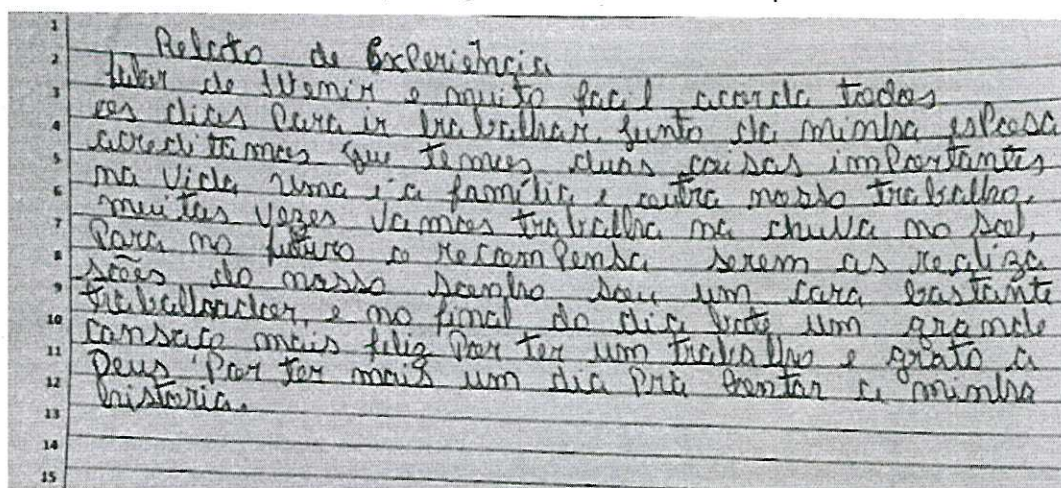 1
2
3
4
5
6
7
8
9
10
11
12
13
14
15
Relato de Experiência
de e muito facil acorda todos
os dias Para ir trabalhar junto da minha esposa
acreditamos que temos duas coisas importantes
na vida uma é a família e outra nosso trabalho,
muitas vezes vamos trabalha na chuva no sol,
Para no futuro a recompensa serem as realiza
sões do nosso sonho sou um cara bastante
trabalhador, e no final do dia bate um grande
cansaço mais feliz Por ter um trabalho e grato a
Deus Por ter mais um dia Pra contar a minha
historia.